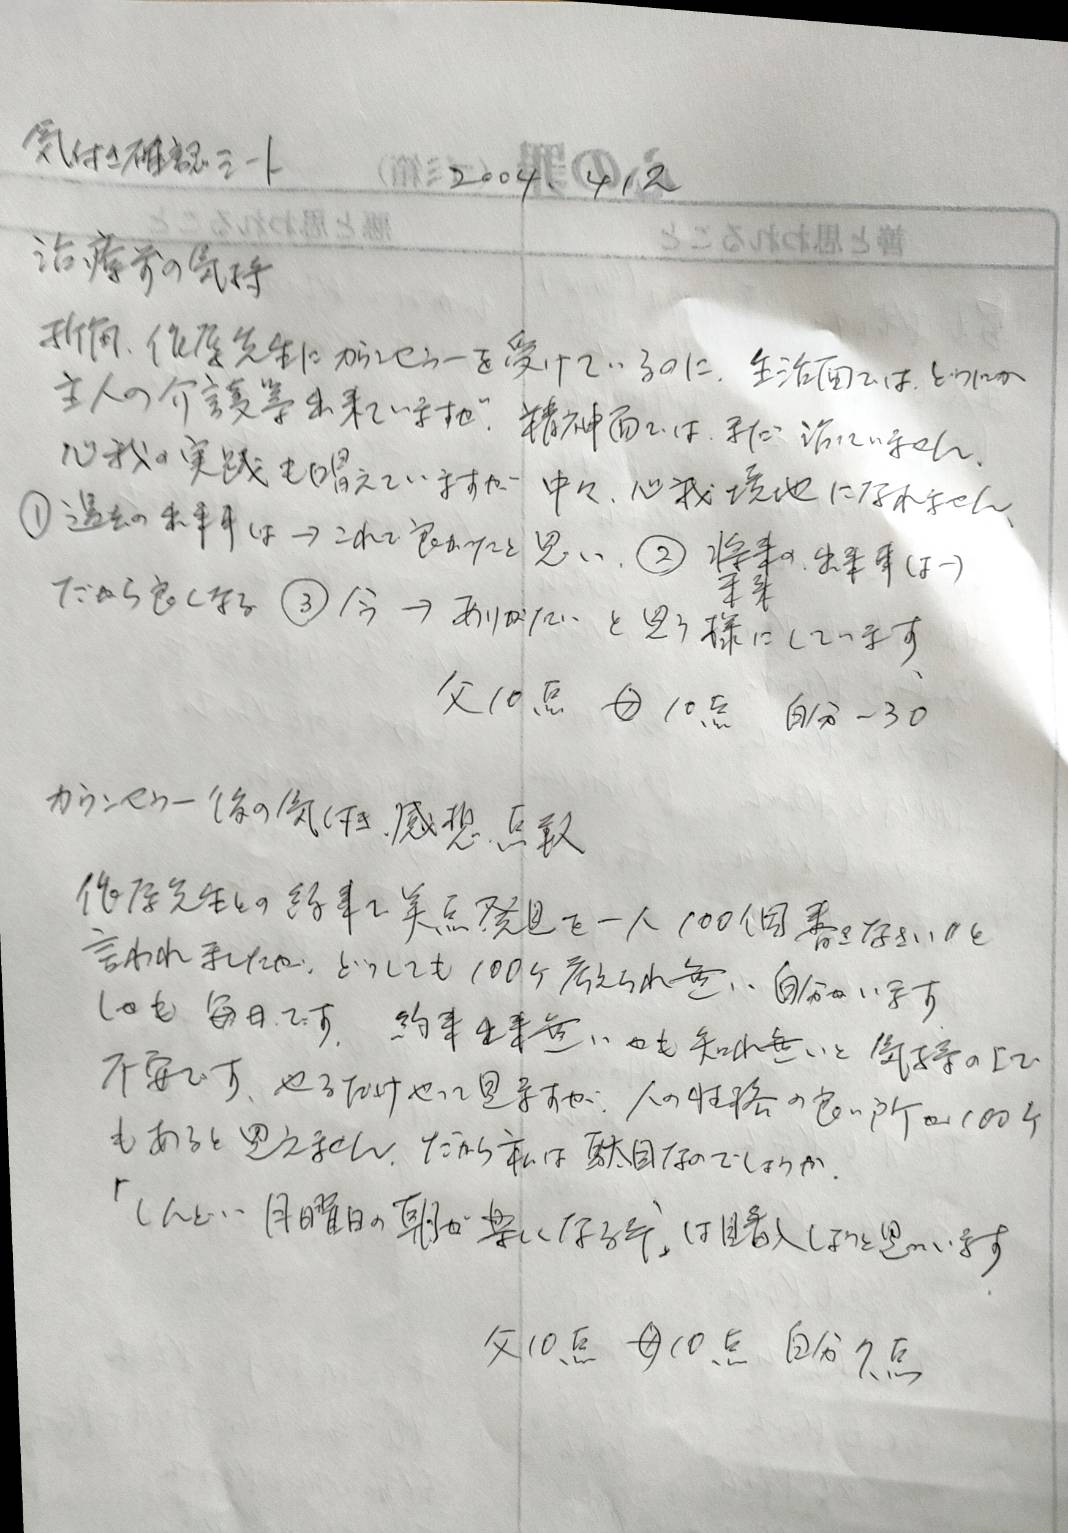 気付き確認シート 2004.4.12
治療前の気持
折角、佐原先生にカウンセラーを受けているのに、生活面では、どうにか
主人の介護等出来ていますが、精神面では、まだ治っていません。
心我の実践も唱えていますが 中々、心我境地になれません、
①過去の出来事は→これで良かったと思い、②将来の、出来事は→
未来
だから良くなる ③今→ありがたい と思う様にしています、
父10点 母10点 自分-30
カウンセラー後の気付き、感想、点数
佐原先生との約束で美点発見を一人100個書きなさい〃と
言われましたが、どうしても100ケ考えられ無い、自分がいます
しかも毎日です。約束出来無いかも知れ無いと気持の上で
不安です、やるだけやって見ますが、人の性格の良い所が100ケ
もあると思えません、だから私は駄目なのでしょうか。
「しんどい月曜日の朝が楽しくなる本」は購入しようと思っています
父10点 母10点 自分 点
心の罪 (ゴミ箱)
善と思われること 悪と思われること